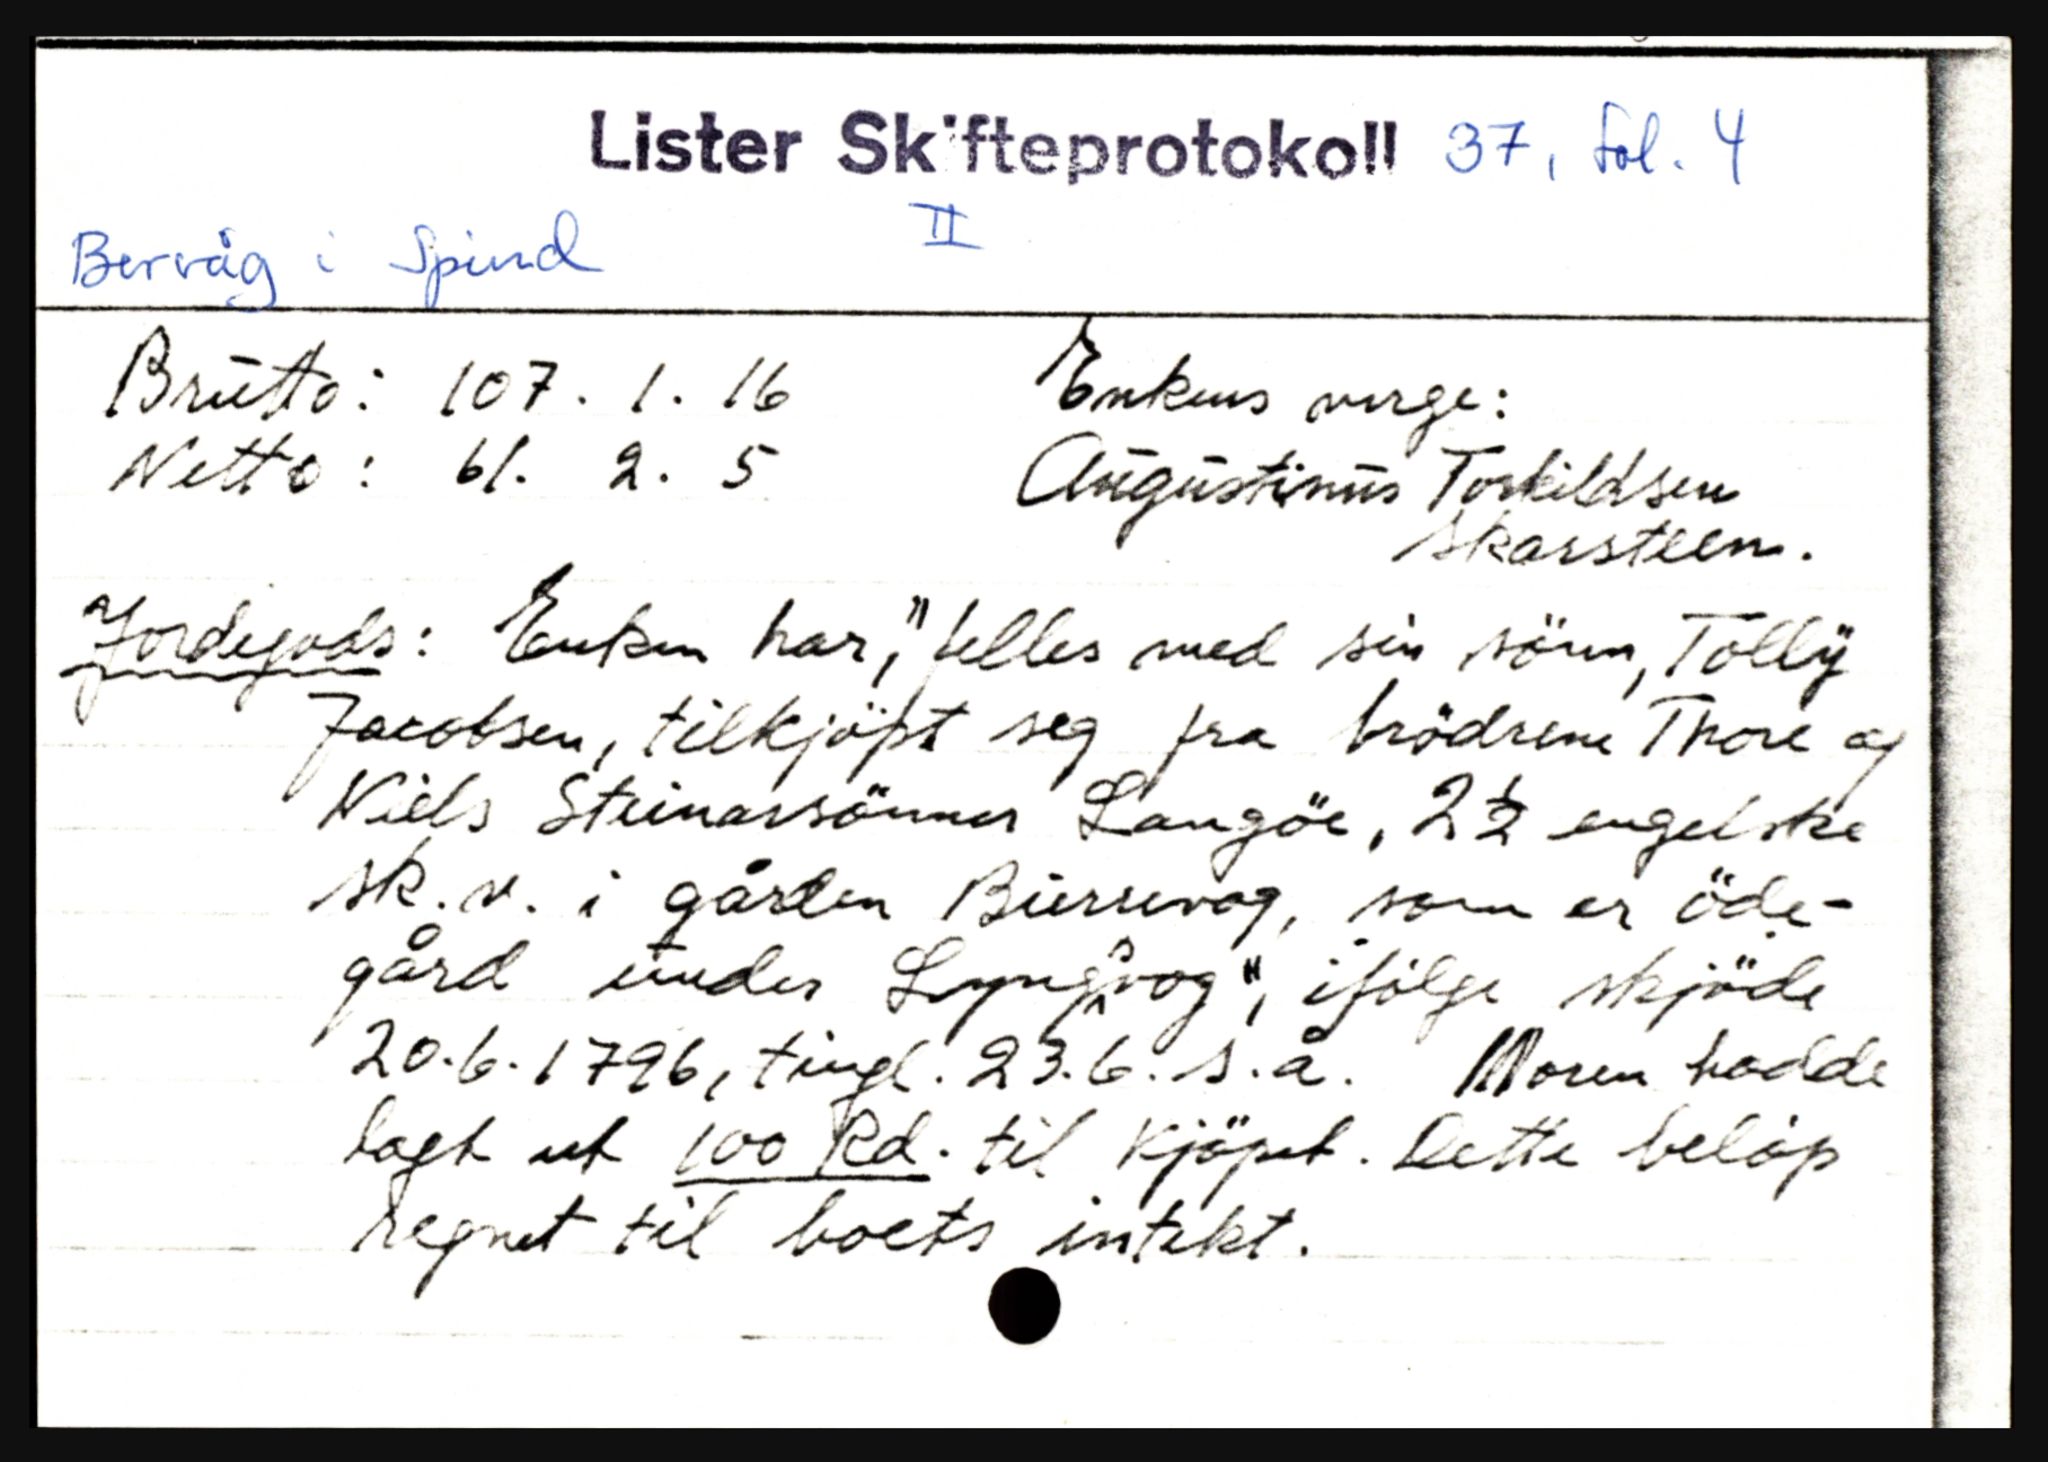 Lister Skifteprotokoll 37, fol. 4
II
Bervåg i Spind
Brutto: 107. 1. 16
Netto: 61. 2. 5
Enkens verge:
Augustinus Torkildsen
Skarsteen.
Jordegods: Enken har, "felles med sin sönn, Tollÿ
Jacobsen, tilkjöpt seg fra brödrene Thore og
Niels Steinarsönner Langöe, 2½ engelske
sk. v. i gården Bierrevog, som er öde-
gård under Lyngsvog", ifölge skjöde
20.6.1796, tingl. 23.6. s.å. Moren hadde
lagt ut 100 Rd. til kjöpet. Dette belöp
regnet til boets intekt.